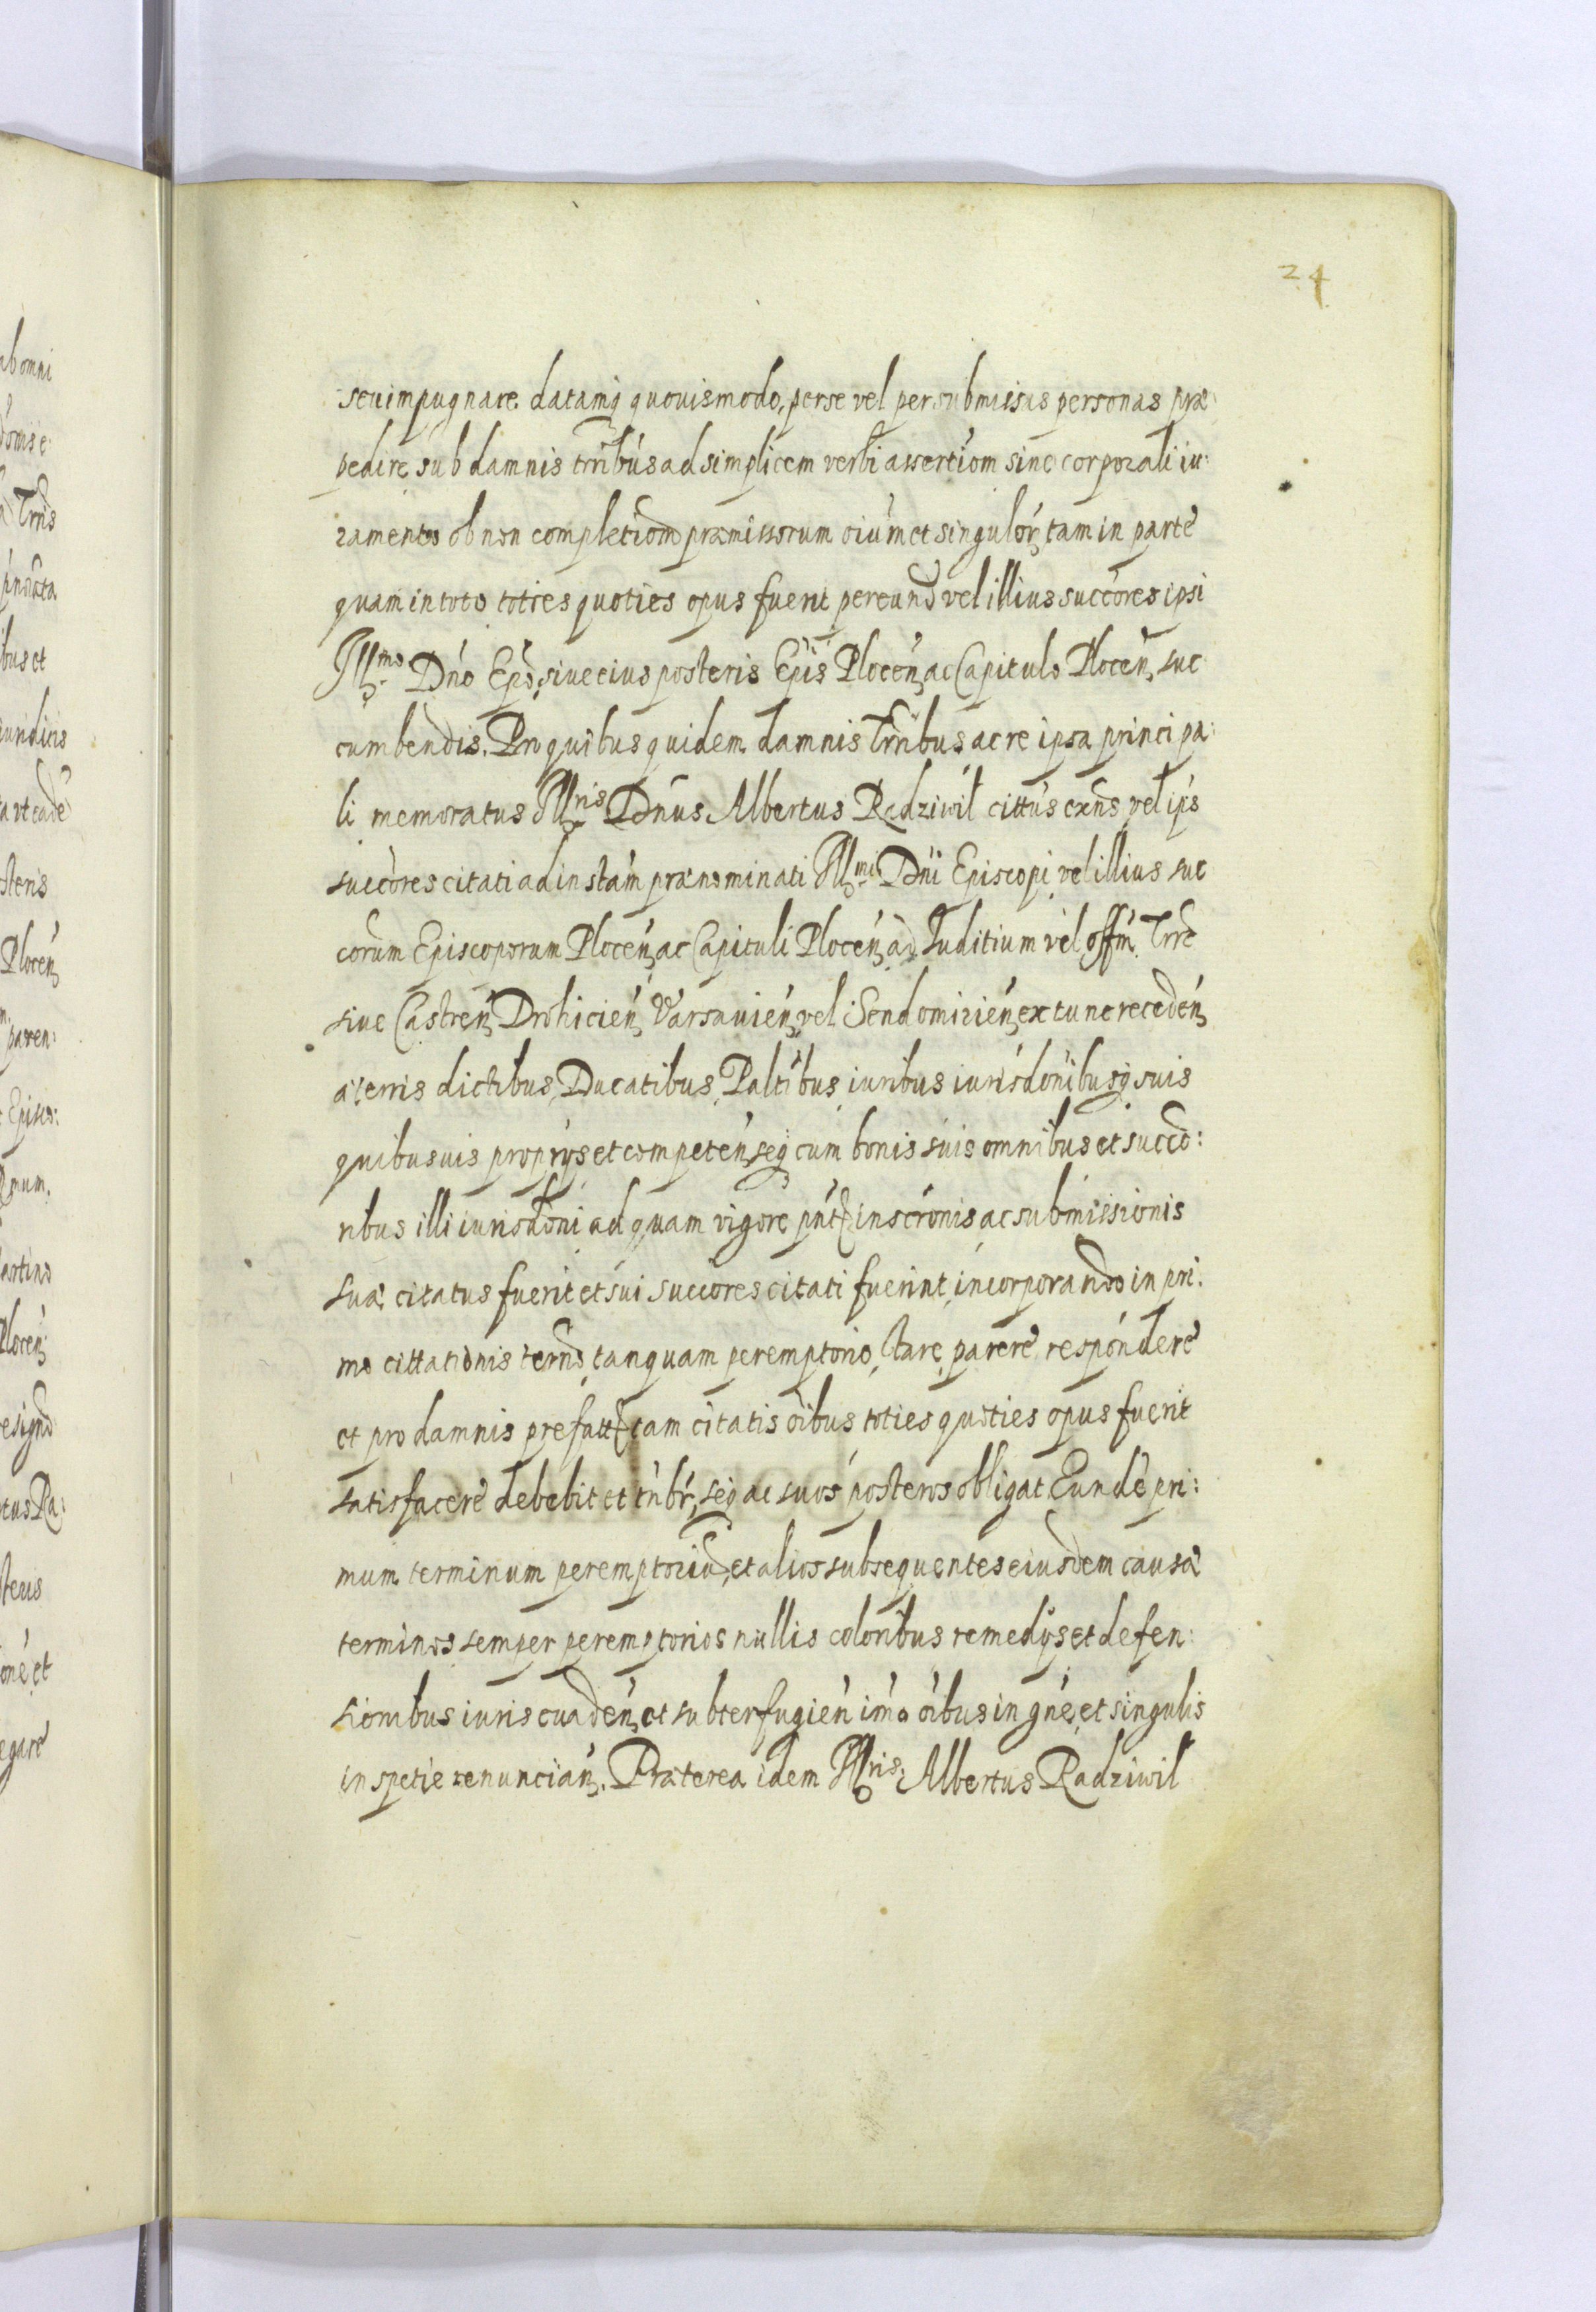 24
seu impugnare datamq́ quouismodo, per se vel per submissas personas præ:
pedire sub damnis trribus ad simplicem verbi assertiom sine corporali iu:
ramento ob non completiom præmissorum oium et singulor, tam in parte
quam in toto toties quoties opus fuerit per eund vel illius succores ipsi
Jll:mo Dno Epo, siue eius posteris Epis Plocen, ac Capitulo Plocen, suc
cumbendis. Pro quibus quidem damnis trribus ac re ipsa principa:
li memoratus Jll:ris Dnus Albertus Radziwil cittus exns vel ips
succores citati ad instam prænominati Jll:mi Dni Episcopi vel illius suc
corum Episcoporum Plocen, ac Capituli Plocen, ad Iuditium vel offm Trre
siue Castren, Drohicien, Varsauien, vel Sendomirien, ex tunc receden,
a terris dictibus, Ducatibus, Paltibus iuribus iurisdonibusq́ suis
quibusuis proprys et competen, seq́ cum bonis suis omnibus et succo:
ribus illi iurisdoni ad quam vigore pnt inscronis ac submissionis
suæ citatus fuerit et sui succores citati fuerint, incorporando in pri:
mo cittationis termo, tanquam peremptorio, stare, parere, respondere
et pro damnis prefatt tam citatis oibus toties quoties opus fuerit
satisfacere debebit et tnbr, seq́ ac suos posteros obligat. Eunde pri:
mum terminum peremptoriu, et alios subsequentes eiusdem causæ
terminos semper peremptorios nullis coloribus remedys et defen:
sionibus iuris euaden, et subterfugien imo oibus in gne, et singulis
in spetie renuncian. Præterea idem Jll:ris Albertus Radziwil